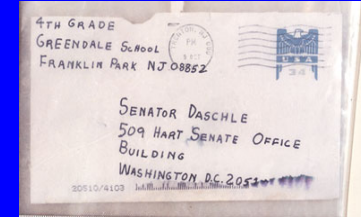 4TH GRADE
GREENDALE SCHOOL
FRANKLIN PARK NJ 08852
TRENTON, NJ
PM
USA
34
SENATOR DASCHLE
509 HART SENATE OFFICE
BUILDING
WASHINGTON D.C. 20510
20510/4103